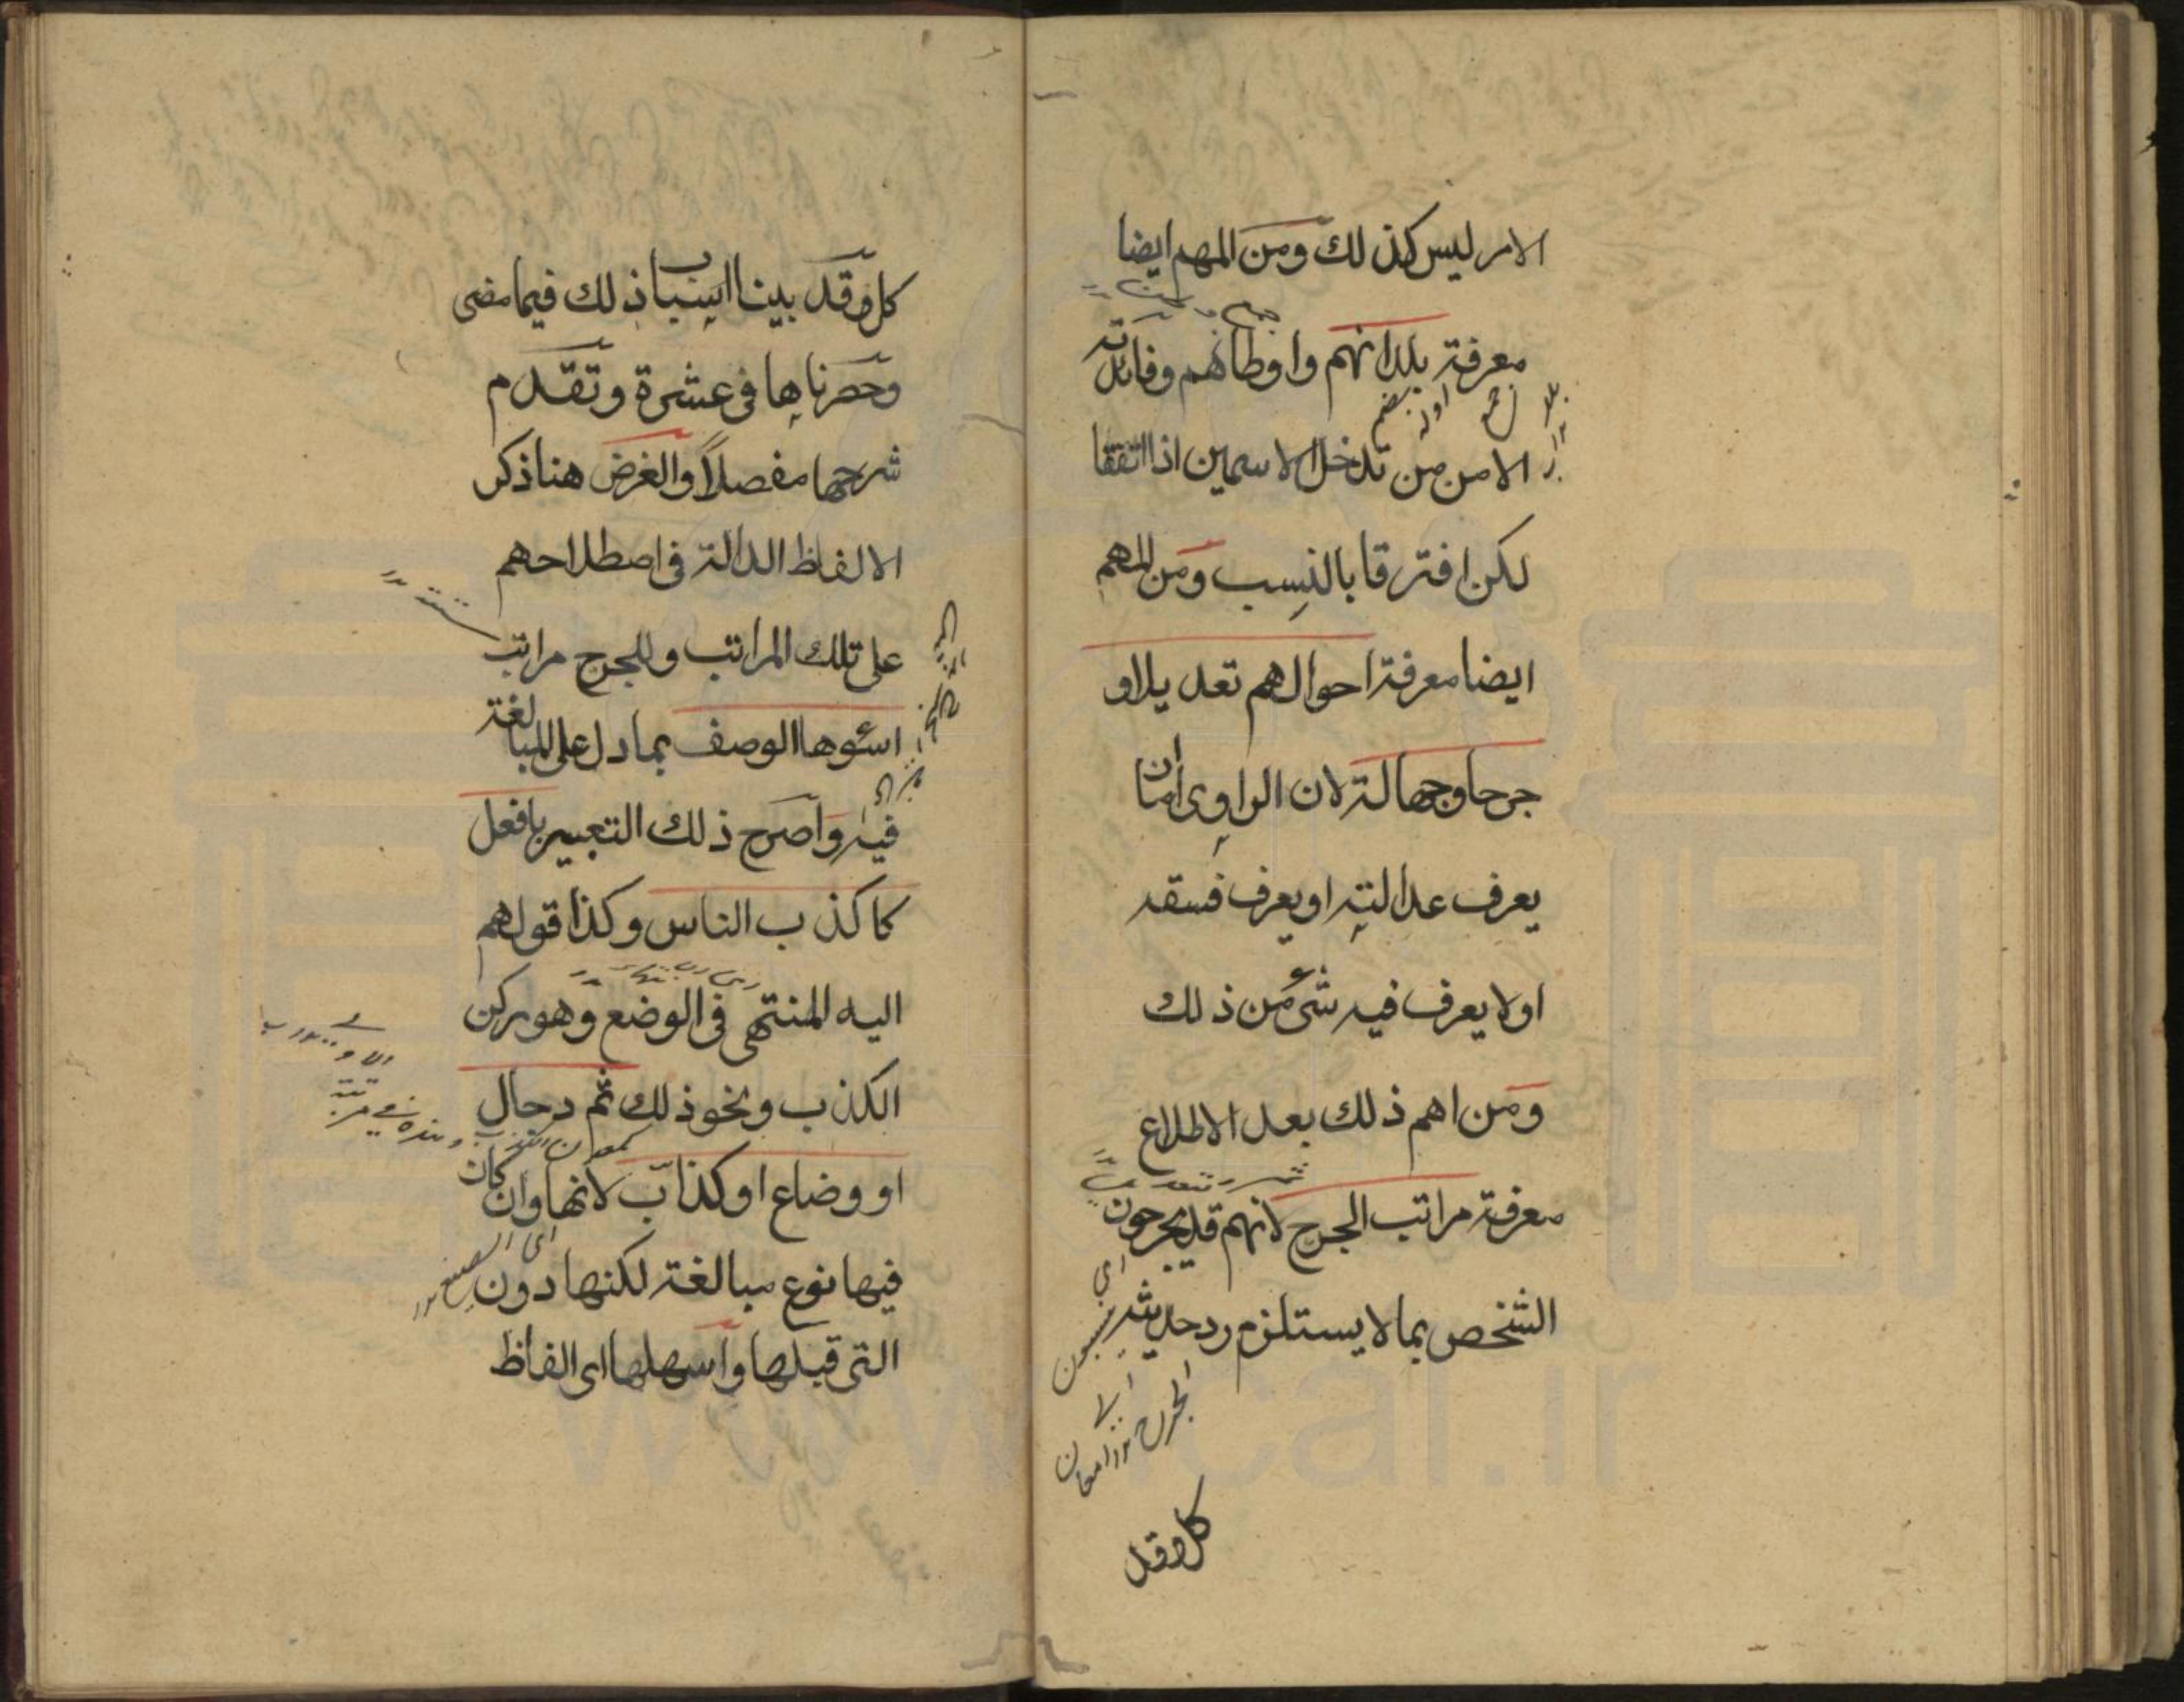 الامر ليس كذلك ومن المهم ايضا
معرفة بلدانهم واوطانهم وفائدته
الامن من تداخل الاسمين اذا اتفقا
لكن افترقا بالنسب ومن المهم
ايضا معرفة احوالهم تعديلا و
جرحا وجهالة لان الراوى اما ان
يعرف عدالته او يعرف فسقه
او لا يعرف فيه شئ من ذلك
ومن اهم ذلك بعد الاطلاع
معرفة مراتب الجرح لانهم قد يجرحون
الشخص بما لا يستلزم رد حديثه
كله وقد
كله وقد بينا اسباب ذلك فيما مضى
وحصرناها فى عشرة وتقدم
شرحها مفصلاً والغرض هنا ذكر
الالفاظ الدالة فى اصطلاحهم
على تلك المراتب وللجرح مراتب
اسوءها الوصف بما دل على المبالغة
فيه واصرح ذلك التعبير بافعل
كاكذب الناس وكذا قولهم
اليه المنتهى فى الوضع وهو ركن
الكذب ونحو ذلك ثم دجال
او وضاع او كذاب لانها وان كان
فيها نوع مبالغة لكنها دون
التى قبلها واسهلها اى الفاظ